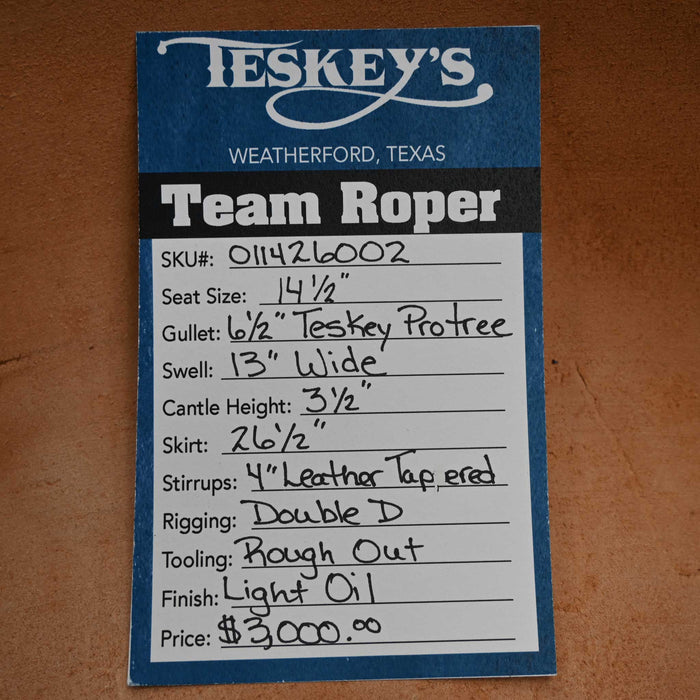 TESKEY'S
WEATHERFORD, TEXAS
Team Roper
SKU#: 011426002
Seat Size: 14 1/2"
Gullet: 6 1/2" Teskey Protree
Swell: 13" Wide
Cantle Height: 3 1/2"
Skirt: 26 1/2"
Stirrups: 4" Leather Tap,ered
Rigging: Double D
Tooling: Rough Out
Finish: Light Oil
Price: $3,000.00